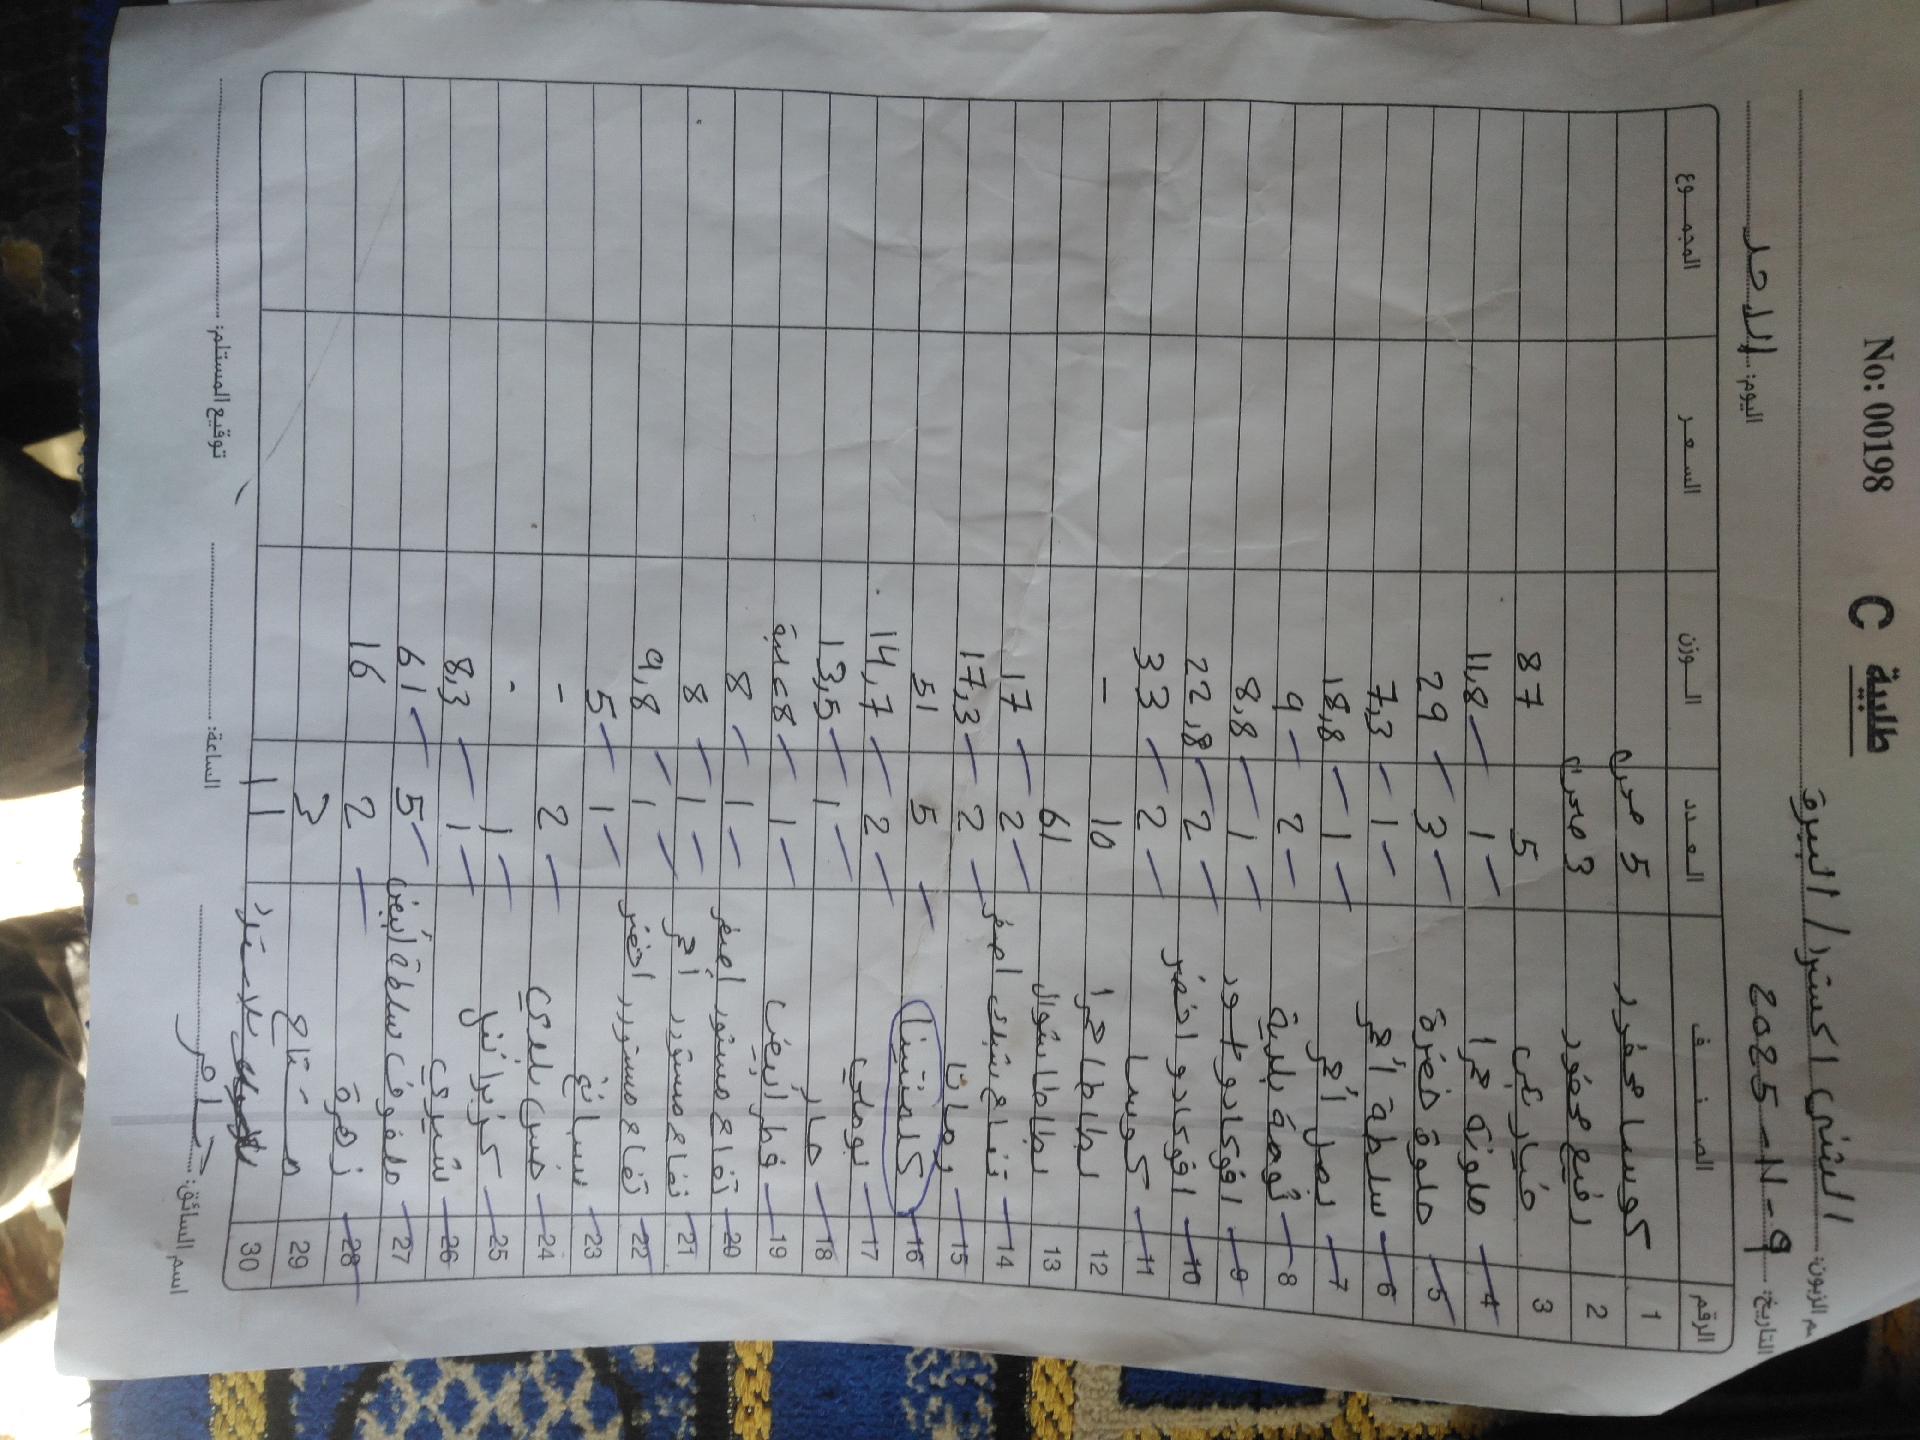 No: 00198
طلبية C
اسم الزبون: الشني اكسترا / البيرة
التاريخ: 9-11-2025 اليوم: الاحد
الرقم الصنف العدد الوزن السعر المجموع
1 كوسا محفور 5 صحن
2 رفيع محفور 3 صحن
3 خيار عبي 5 87
4 ملونة حمرا 1 11,8
5 حلوة خضرة 3 29
6 سلطة أحمر 1 7,3
7 بصل أحمر 1 18,8
8 ثومة بلدية 2 9
9 افوكادو اسود 1 8,8
10 افوكادو اخضر 2 22,8
11 كوسا 2 33
12 بطاطا حمرا 10 -
13 بطاطا شوال 61
14 تفاح سكري اصفر 2 17
15 رمان 2 17,3
16 كلمنتينا 5 51
17 بوملي 2 14,7
18 خيار 1 13,5
19 فطر أبيض 1 68 علبة
20 تفاح مستورد أصفر 1 8
21 تفاح مستورد أحمر 1 8
22 تفاح مستورد اخضر 1 9,8
23 سبانخ 1 5
24 خس بلدي 2 -
25 كزبرا 1 -
26 شيري 1 8,3
27 ملفوف سلطة أبيض 5 61
28 زهرة 2 16
29 3
30 11
اسم السائق: الساعة: توقيع المستلم: